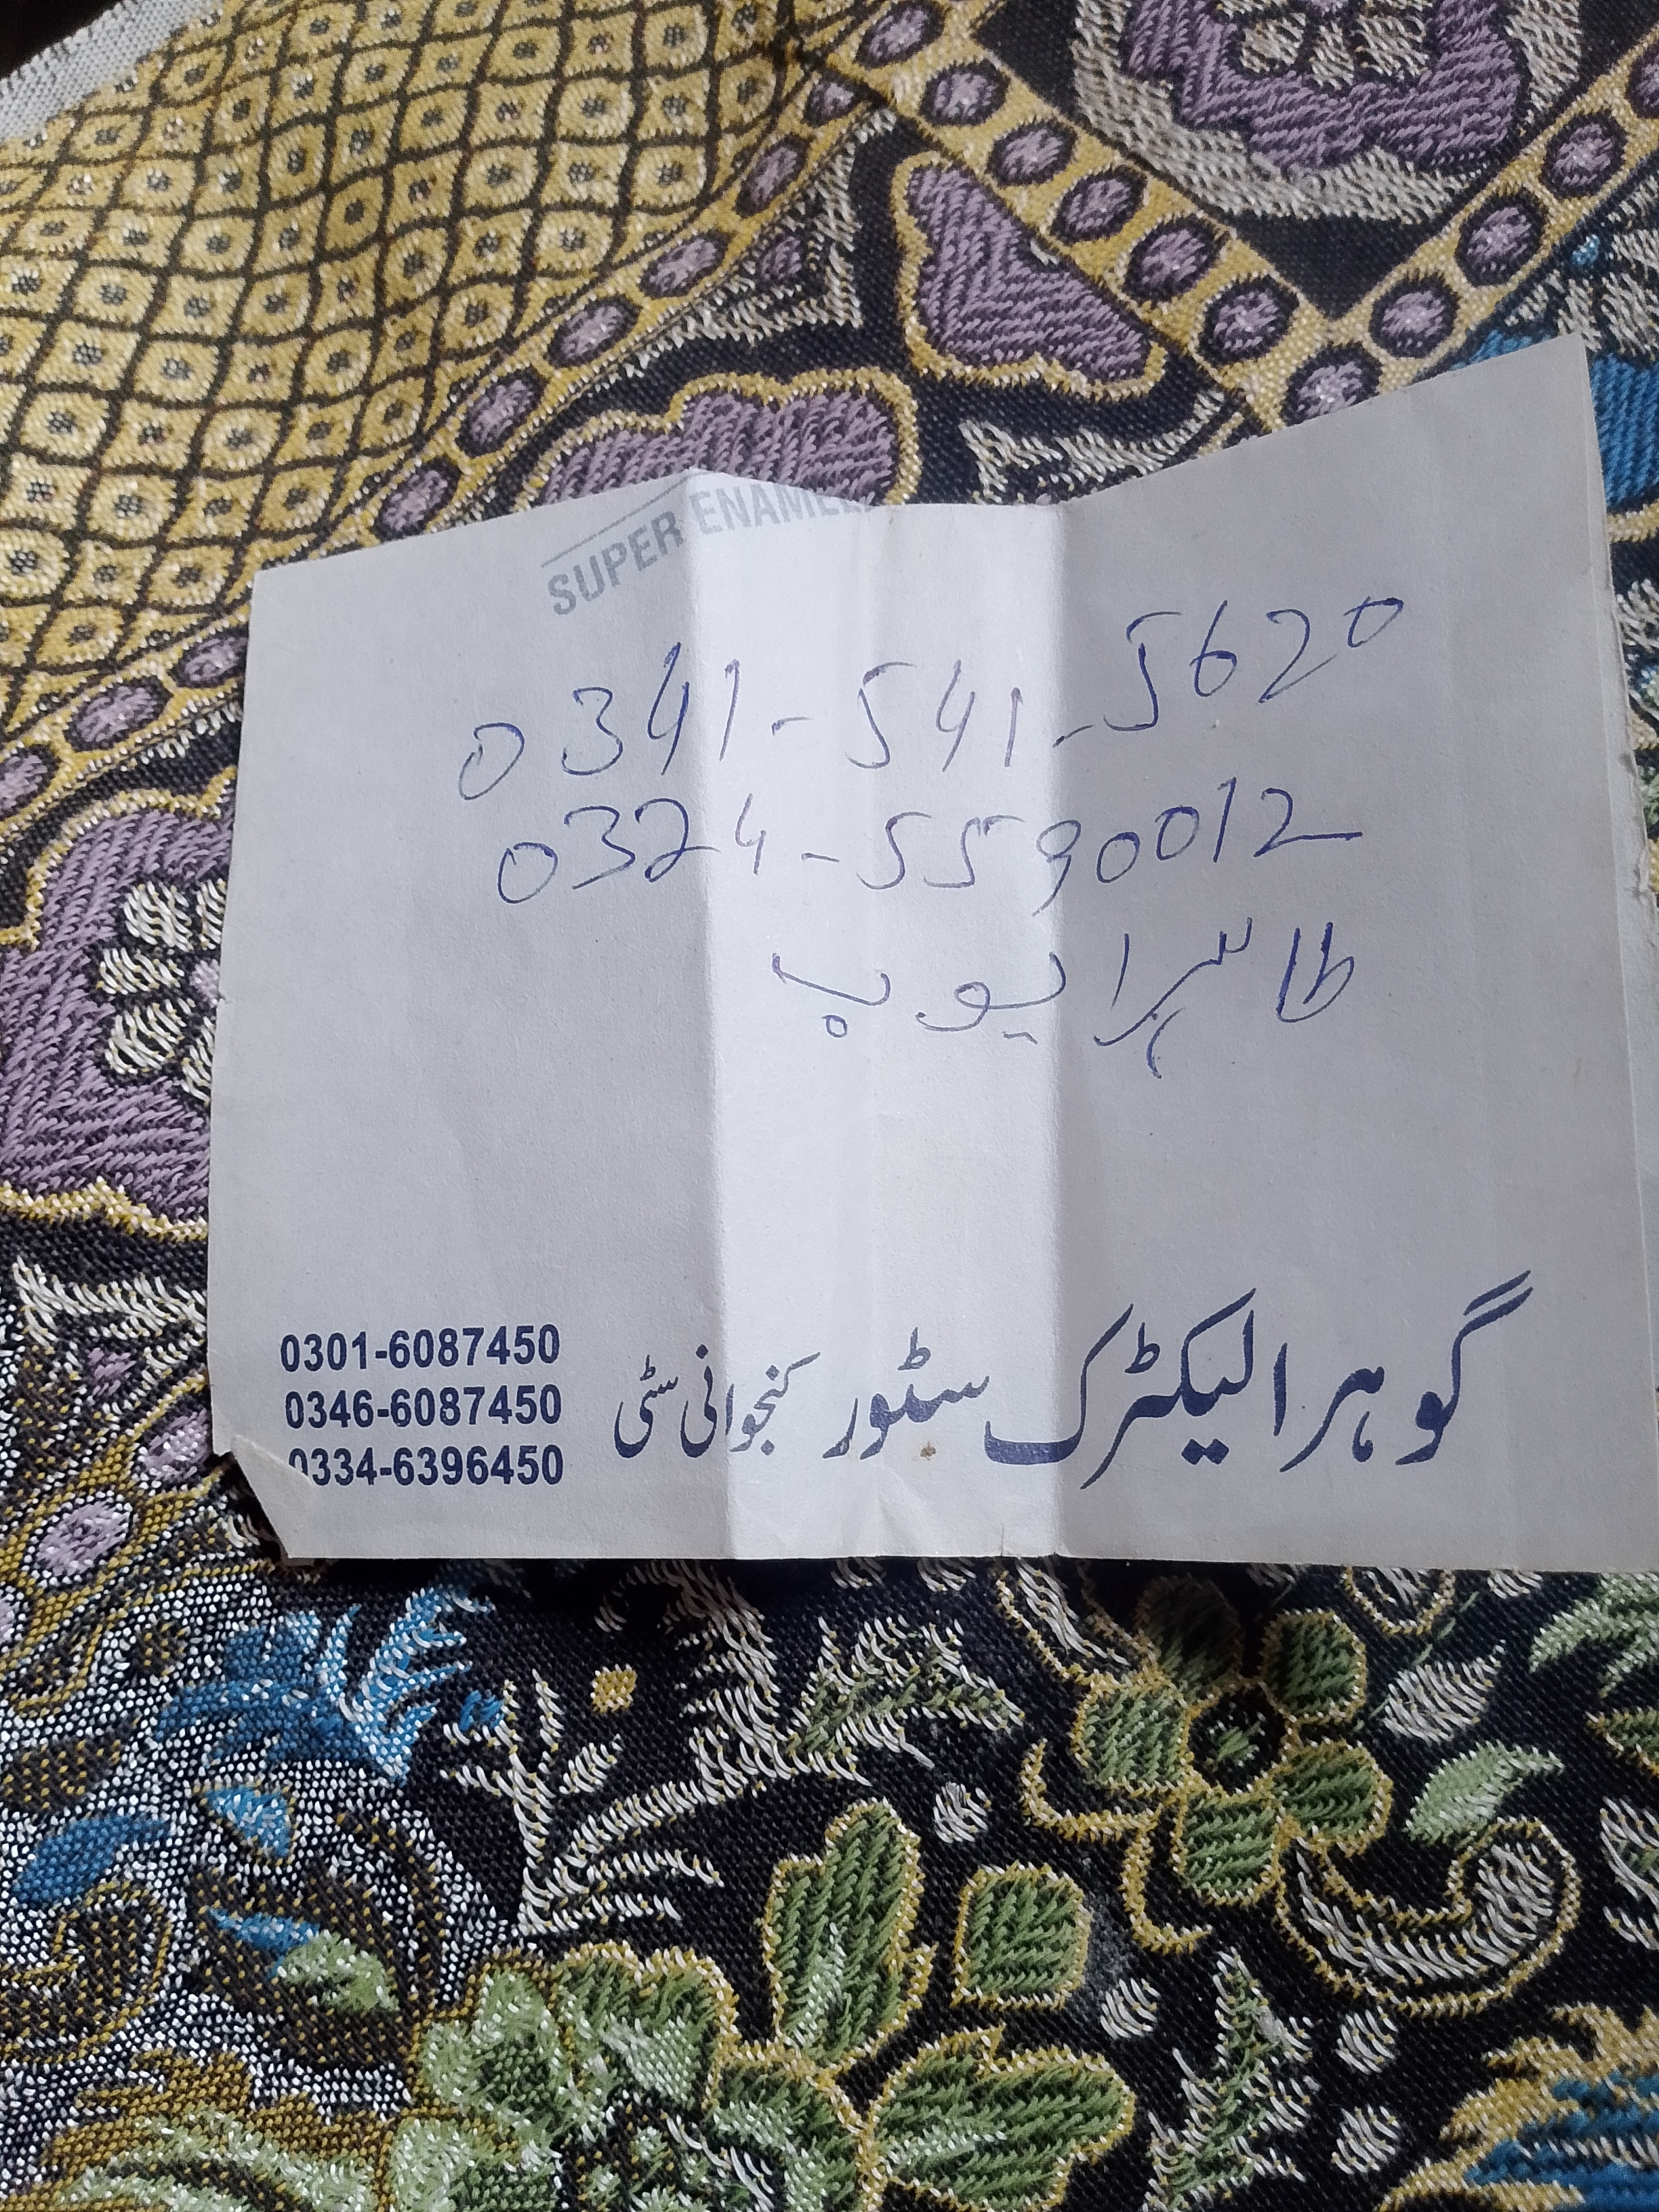 SUPER ENAMEL
0341-541-5620
0324-5590012
طاہر ایوب
گوہر الیکٹرک سٹور کنجوانی سٹی
0301-6087450
0346-6087450
0334-6396450